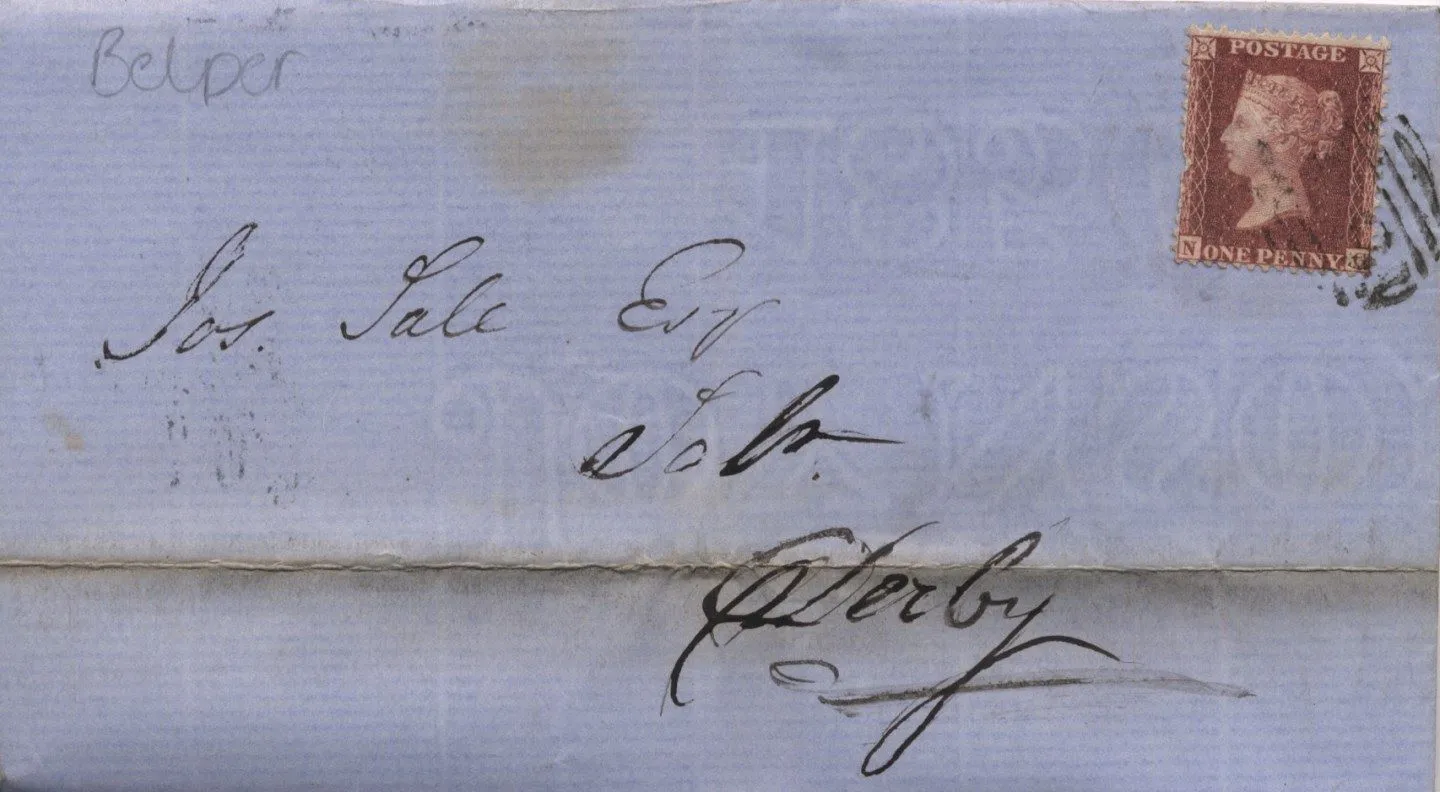 Belper
POSTAGE
N ONE PENNY G
Jos. Sale Esq
Solr.
Derby